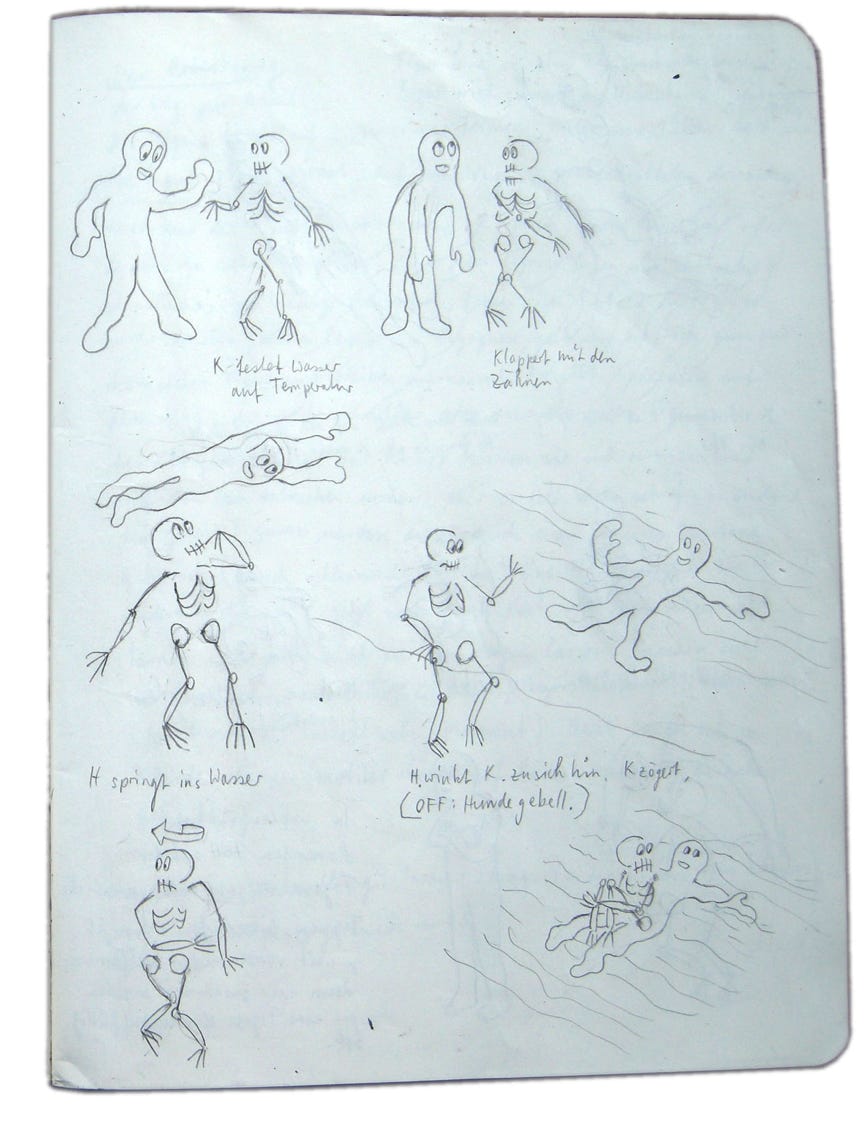 K testet Wasser
auf Temperatur
Klappert mit den
Zähnen
H springt ins Wasser
H. winkt K. zu sich hin. K zögert.
(OFF: Hundegebell.)